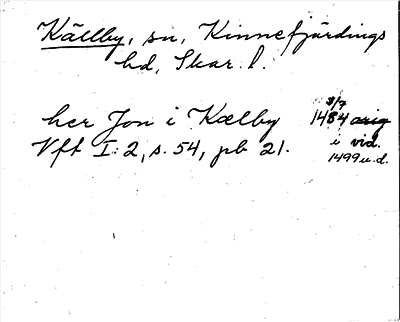 Källby, sn, Kinnefjärdings
hd, Skar. l.
her Jon i Kælby 8/7 1484 avig
Vft I:2, s. 54, pb 21. i vid.
1499 u.d.